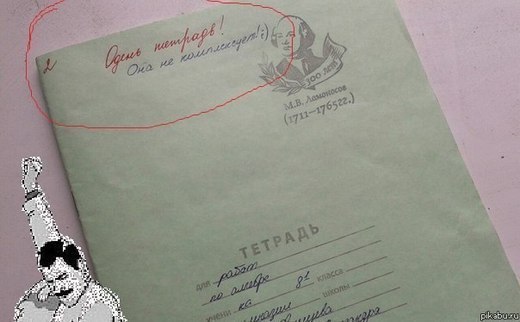 2 Одень тетрадь!
Она не комплексует! :)
300 лет
М.В. Ломоносов
(1711-1765гг.)
ТЕТРАДЬ
для работ
по алгебре
учени ка 8 класса
школы
pikabu.ru